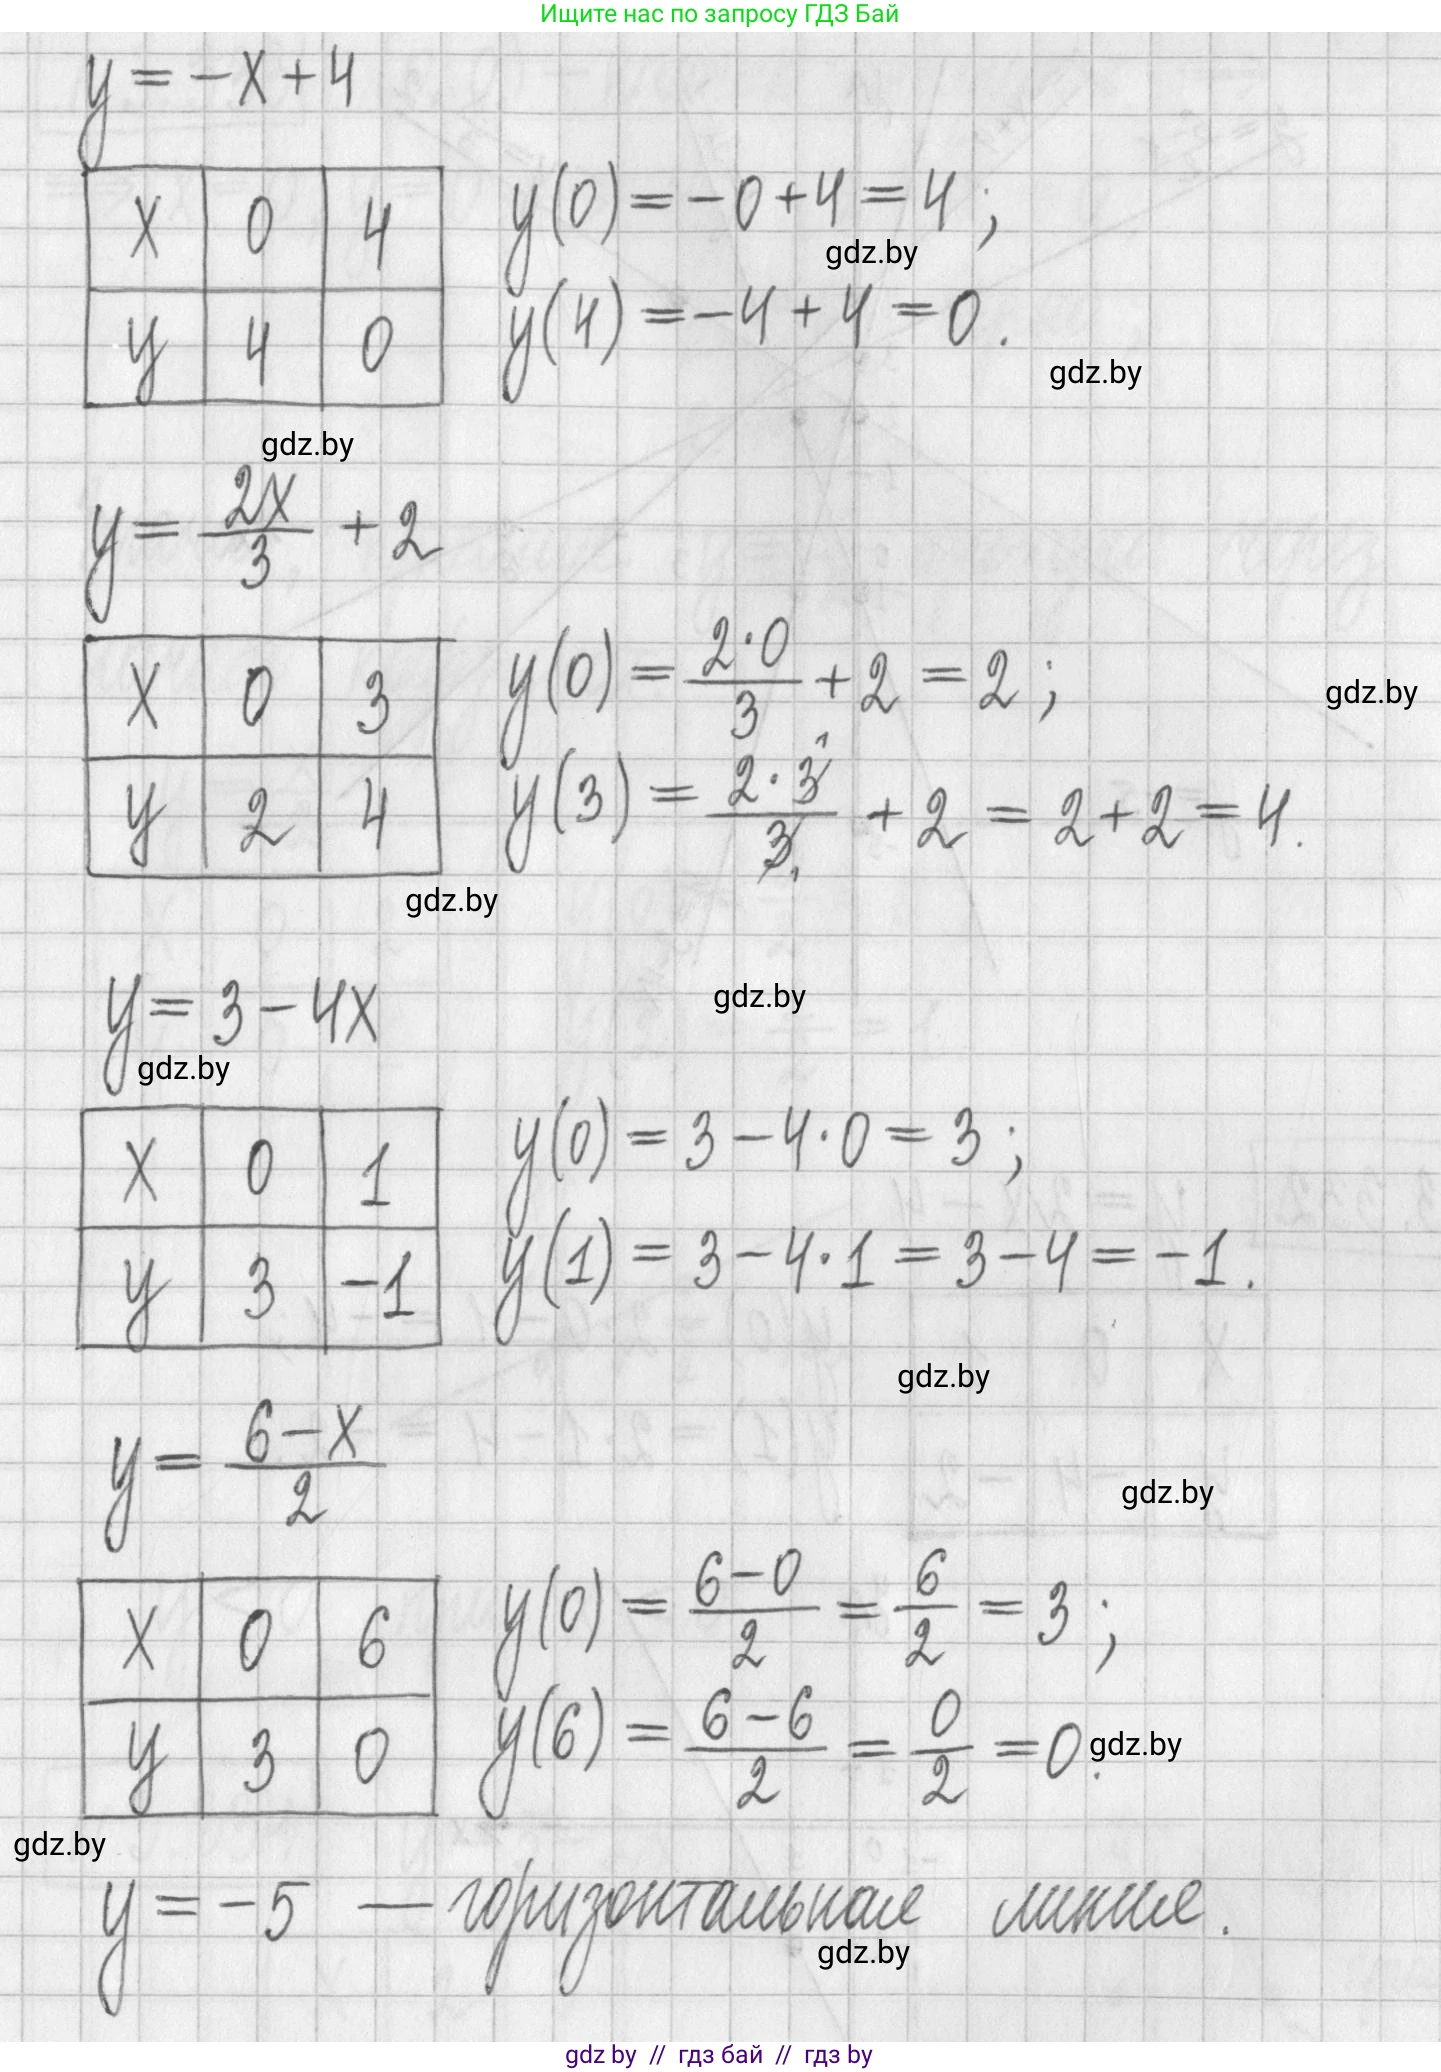 Ищите нас по запросу ГДЗ Бай
y = -x + 4
x 0 4
y 4 0
y(0) = -0 + 4 = 4 ;
gdz.by
y(4) = -4 + 4 = 0 .
gdz.by
gdz.by
y = 2x/3 + 2
x 0 3
y 2 4
y(0) = 2·0/3 + 2 = 2 ;
gdz.by
y(3) = 2·3/3 + 2 = 2 + 2 = 4.
1
1
gdz.by
gdz.by
y = 3 - 4x
gdz.by
x 0 1
y 3 -1
y(0) = 3 - 4·0 = 3 ;
y(1) = 3 - 4·1 = 3 - 4 = -1 .
gdz.by
y = 6-x/2
gdz.by
x 0 6
y 3 0
y(0) = 6-0/2 = 6/2 = 3 ;
y(6) = 6-6/2 = 0/2 = 0 .
gdz.by
gdz.by
y = -5 — горизонтальная линия .
gdz.by
gdz by // гдз бай // гдз by